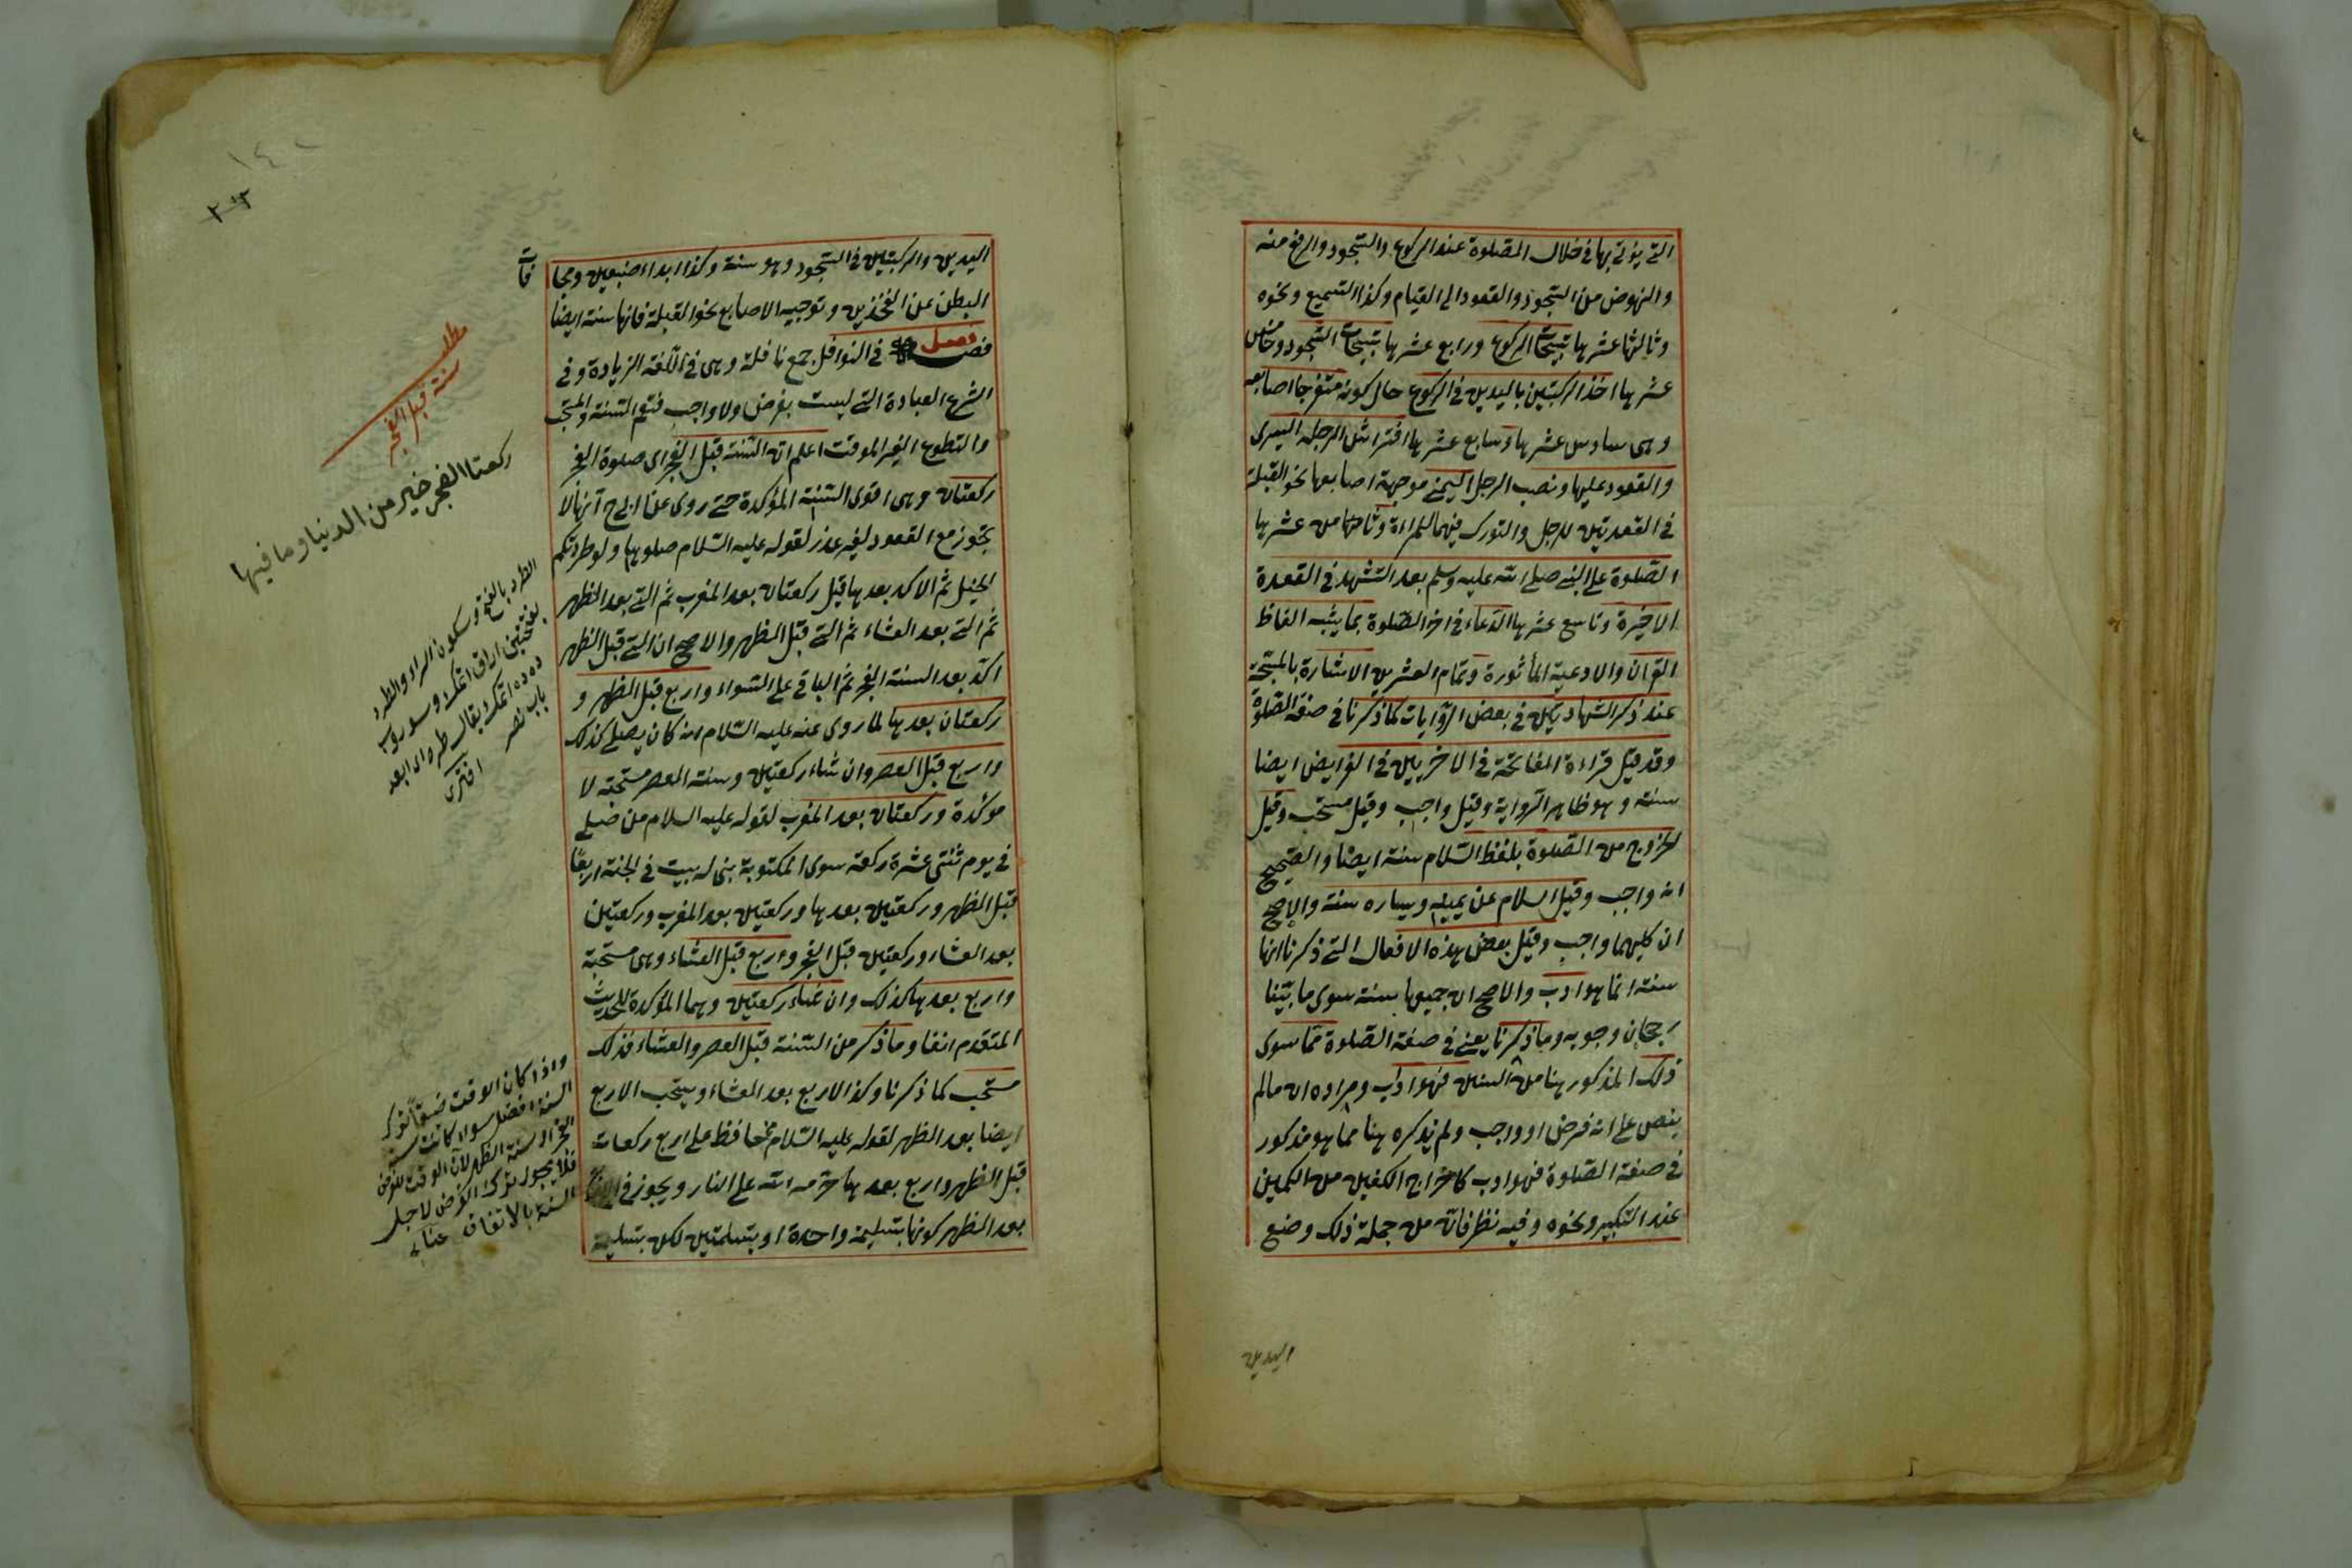 التى يؤتى بها فى خلال الصلوة عند الركوع والسجود والرفع منه
والنهوض من السجود والقعود الى القيام وكذا التسميع ونحوه
وثالثها عشرها تسبيحات الركوع ورابع عشرها تسبيحات السجود وخامس
عشرها اخذ الركبتين باليدين فى الركوع حال كونه متفرجا اصابعه
وهى سادس عشرها وسابع عشرها افتراش الرجل اليسرى
والقعود عليها ونصب الرجل اليمنى موجهة اصابعها نحو القبلة
فى القعدتين للرجل والتورك فيهما للمرءة وثامن عشرها
الصلوة على النبى صلى الله عليه وسلم بعد التشهد فى القعدة
الاخيرة وتاسع عشرها الدعاء فى اخر الصلوة بما يشبه الفاظ
القران والادعية المأثورة وتمام العشرين الاشارة بالمسبحة
عند ذكر الشهادتين فى بعض الروايات كما ذكرنا فى صفة الصلوة
وقد قيل قراءة الفاتحة فى الاخريين فى الفرايض ايضا
سنة وهو ظاهر الرواية وقيل واجب وقيل مستحب وقيل
الخروج من الصلوة بلفظ السلام سنة ايضا والصحيح
انه واجب وقيل السلام عن يمينه ويساره سنة والاصح
ان كليهما واجب وقيل بعض هذه الافعال التى ذكرنا انها
سنة انما هو ادب والاصح ان جميعها سنة سوى ما بينا
رجحان وجوبه وما ذكرنا يعنى فى صفة الصلوة مما سوى
ذلك المذكور هنا من السنن فهو ادب ومراده ان ما لم
ينص على انه فرض او واجب ولم يذكره هنا مما هو مذكور
فى صفة الصلوة فهو ادب كاخراج الكفين من الكمين
عند التكبير ونحوه وفيه نظر فان من جملة ذلك وضع
اليدين
اليدين والركبتين فى السجود وهو سنة وكذا ابداء ضبعين ومجا
فات
البطن عن الفخذين وتوجيه الاصابع نحو القبلة فانها سنة ايضا
فصل فى النوافل جمع نافلة وهى فى اللغة الزيادة وفى
الشرع العبادة التى ليست بفرض ولا واجب فتعم السنة والمستحب
والتطوع الغير الموقت اعلم ان السنة قبل الفجر اى صلوة الفجر
ركعتان وهى اقوى السنة المؤكدة حتى روى عن ابى ح انها لا
تجوز مع القعود لغير عذر لقوله عليه السلام صلوها ولو طردتكم
الخيل ثم الاكد بعدها قيل ركعتان بعد المغرب ثم التى بعد الظهر
ثم التى بعد العشاء ثم التى قبل الظهر والاصح ان التى قبل الظهر
اكد بعد السنة الفجر ثم الباقى على السواء واربع قبل الظهر و
ركعتان بعدها لما روى عنه عليه السلام انه كان يصلى كذلك
واربع قبل العصر وان شاء ركعتين وسنة العصر مستحبة لا
موكدة وركعتان بعد المغرب لقوله عليه السلام من صلى
فى يوم ثنتى عشرة ركعة سوى المكتوبة بنى له بيت فى الجنة اربعا
قبل الظهر وركعتين بعدها وركعتين بعد المغرب وركعتين
بعد العشاء وركعتين قبل الفجر واربع قبل العشاء وهى مستحبة
واربع بعدها كذلك وان شاء ركعتين وهما المؤكدة للحديث
المتقدم انفا وما ذكر من السنة قبل العصر والعشاء فذلك
مستحب كما ذكرنا وكذا الاربع بعد العشاء ويستحب الاربع
ايضا بعد الظهر لقوله عليه السلام من حافظ على اربع ركعات
قبل الظهر واربع بعدها حرمه الله على النار ويجوز فى
بعد الظهر كونها بتسليمة واحدة او بتسلمتين لكن بتسليمة
١٤٢
مطلب
سنة قبل الفجر
ركعتا الفجر خير من الدنيا وما فيها
الطرد بالفتح وسكون الراء والطرد
بفتحتين
ويقال طرده ابعد
باب نصر
اختى
واذا كان الوقت ضيقا ترك
السنة افضل سواء كانت سنة
الفجر او سنة الظهر لان الوقت للفرض
فلا يجوز ترك الفرض لاجل
السنة بالاتفاق